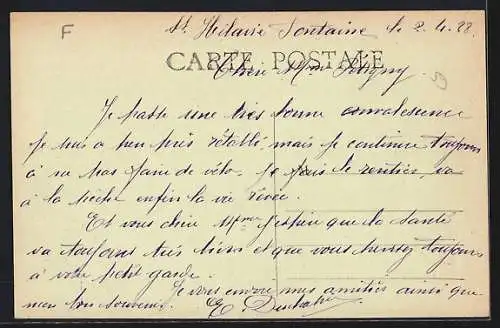 F
St Hilaire Fontaine le 2.4.22.
CARTE POSTALE
Chère Mme
Je passe une très bonne convalescence
je suis a peu près rétabli, mais je continue toujours
à ne pas faire de vélo. Je fais le rentier, va
à la pèche enfin la vie rêvée.
Et vous chère Mme j'espère que la santé
va toujours très bien et que vous pensez toujours
à votre petit garde.
Je vous envoie mes amitiés ainsi que
mon bon souvenir. E.